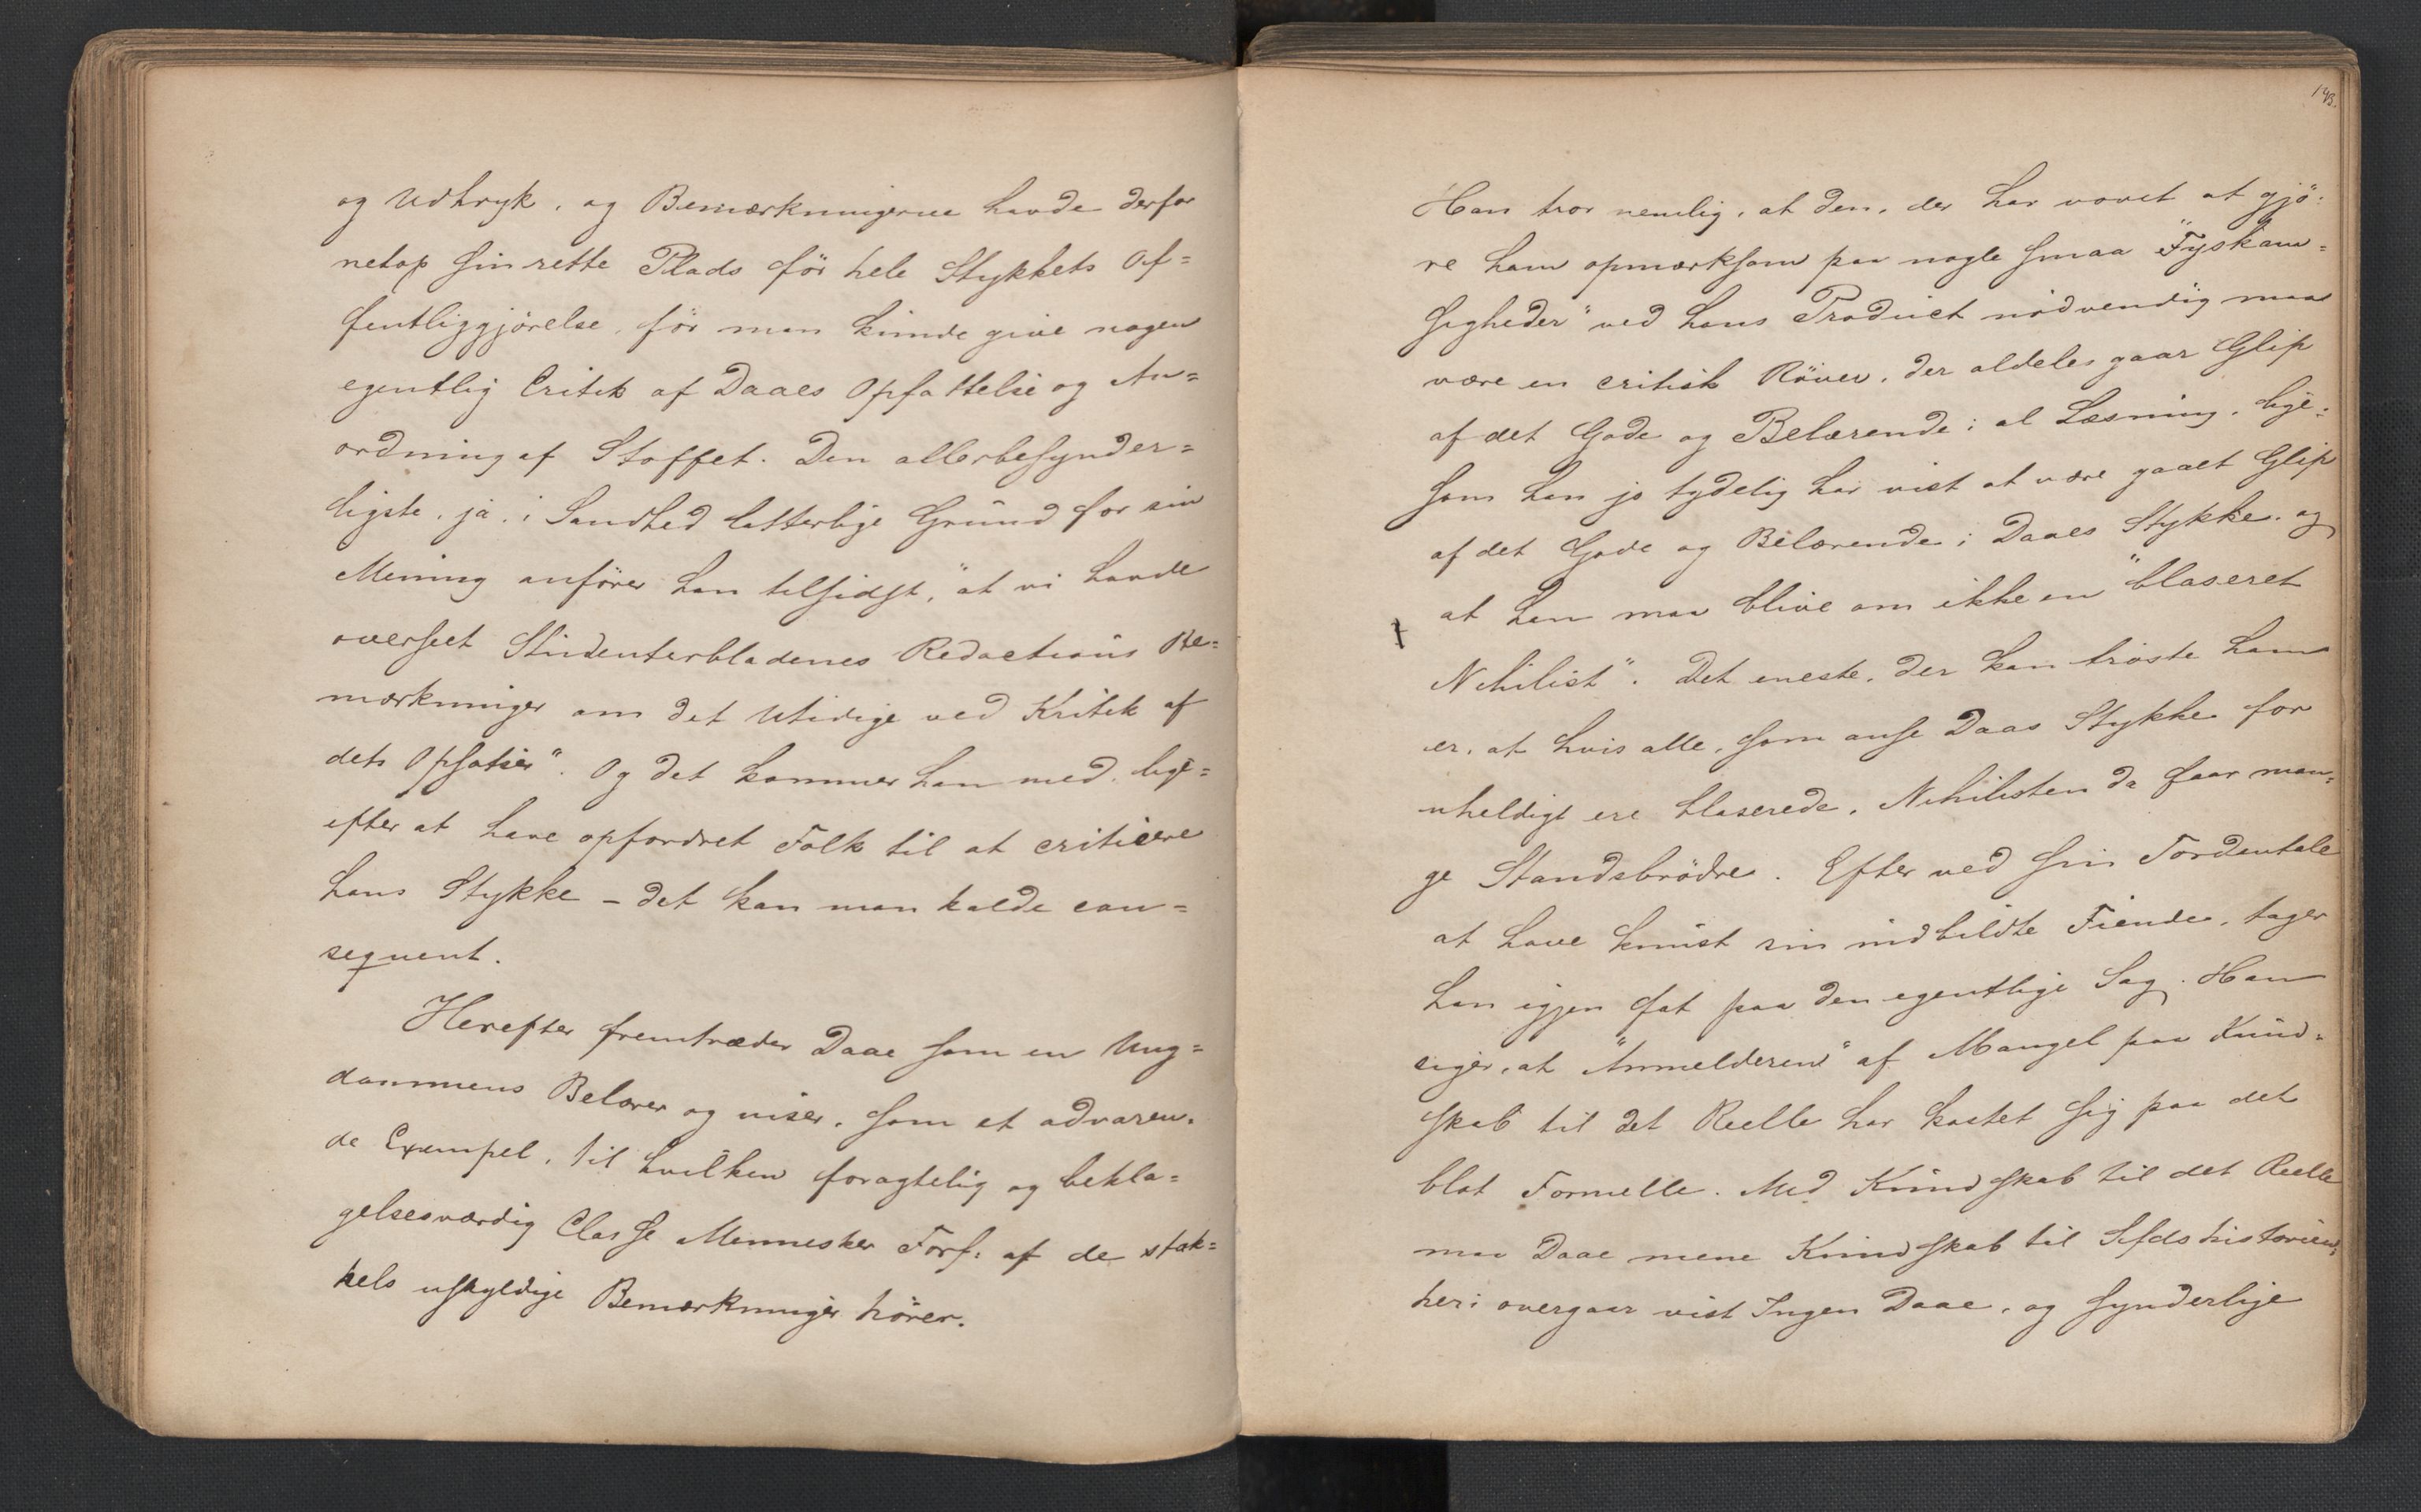 og Udtryk, og Bemærkningerne havde derfor
netop sin rette Plads før hele Stykkets Of=
fentliggjørelse, før man kunde give nogen
egentlig Critik af Daaes Opfattelse og An=
ordning af Stoffet. Den allerbesynder=
ligste, ja, i Sandhed latterlige Grund for sin
Mening anfører han tilsidst, "at vi havde
overseet Studenterbladenes Redactions Be=
mærkninger om det Utidige ved Kritik af
dets Opsatser". Og det kommer han med lige=
efter at have opfordret Folk til at criticere
hans Stykke – det kan man kalde con=
sequent.
Herefter fremtræder Daae som en Ung=
dommens Belærer og viser, som et advaren=
de Exempel, til hvilken foragtelig og bekla=
gelsesværdig Classe Mennesker Forf: af de stak=
kels uskyldige Bemærkninger hører.
143.
Han tror nemlig, at den, der har vovet at gjö=
re ham opmærksom paa nogle smaa "Tyskam=
sigheder" ved hans Product nødvendig maa
være en critisk Röver, der aldeles gaar Glip
af det Gode og Belærende i al Læsning, lige=
som han jo tydelig har vist at være gaaet Glip
af det Gode og Belærende i Daaes Stykke, og
at han maa blive om ikke en "blaseret
Nihilist". Det eneste, der kan trøste ham
er, at hvis alle, som anse Daas Stykke for
uheldigt ere blaserede, Nihilisten da faar man=
ge Standsbrødre. Efter ved sin Tordentale
at have knust sin indbildte Fiende, tager
han igjen fat paa den egentlige Sag. Han
siger, at "Anmelderen" af Mangel paa Kund=
skab til det Reelle har kastet sig paa det
blot Formelle. Med Kundskab til det Reelle
maa Daae mene Kundskab til Sfdshistorien,
heri overgaar vist Ingen Daae, og synderlige